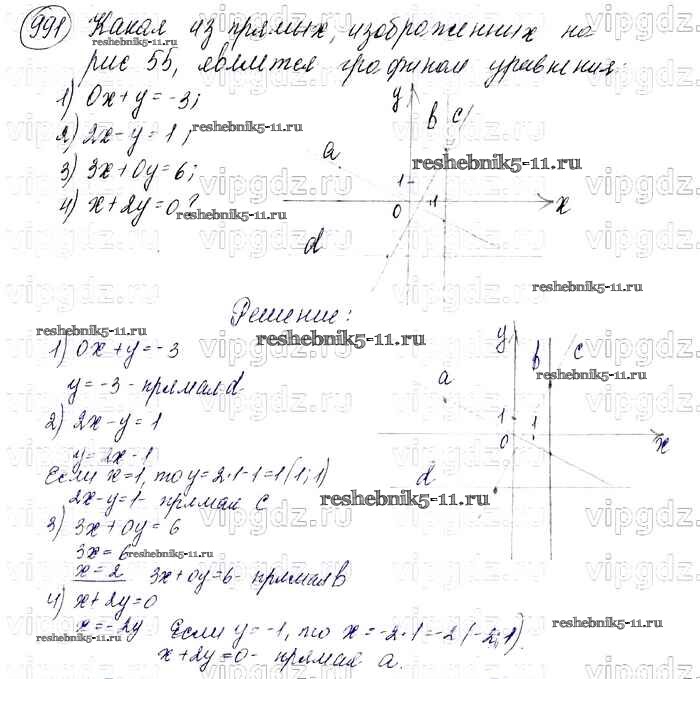 991 Какая из прямых, изображенных на
рис 55, является графиком уравнения:
1) 0x+y=-3;
2) 2x-y=1;
3) 3x+0y=6;
4) x+2y=0?
y
b
c
a
1
0
1
x
d
Решение:
1) 0x+y=-3
y=-3 - прямая d
2) 2x-y=1
y=2x-1
Если x=1, то y=2·1-1=1 (1;1)
2x-y=1- прямая c
3) 3x+0y=6
3x=6
x=2 3x+0y=6- прямая b
4) x+2y=0
x=-2y Если y=-1, то x=-2·1=-2 (-2;1).
x+2y=0- прямая a.
y
b
c
a
1
0
1
x
d
reshebnik5-11.ru
vipgdz.ru